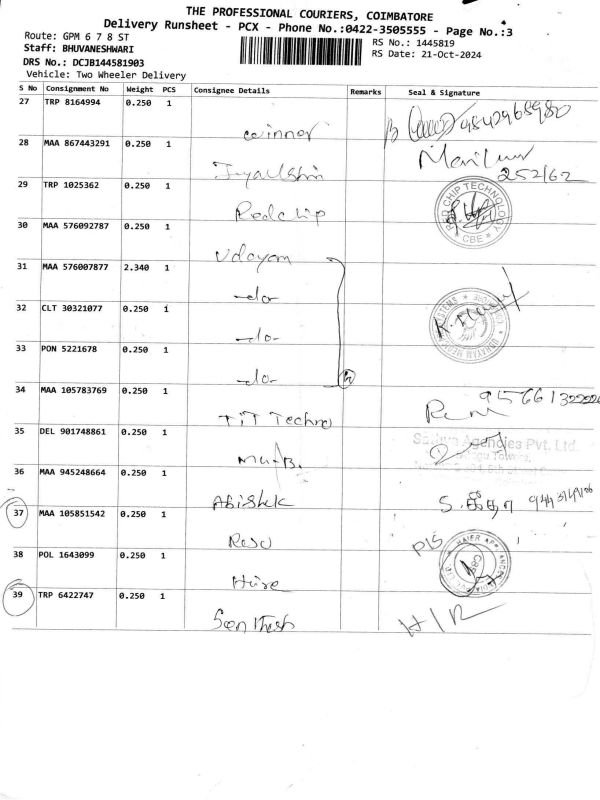 THE PROFESSIONAL COURIERS, COIMBATORE
Delivery Runsheet - PCX - Phone No.:0422-3505555 - Page No.:3
Route: GPM 6 7 8 ST
RS No.: 1445819
Staff: BHUVANESHWARI
RS Date: 21-Oct-2024
DRS No.: DCJB144581903
Vehicle: Two Wheeler Delivery
S No Consignment No Weight PCS Consignee Details Remarks Seal & Signature
27 TRP 8164994 0.250 1
winner
28 MAA 867443291 0.250 1
252/62
29 TRP 1025362 0.250 1
Redchip
RED CHIP TECHNOLOGY
CBE
30 MAA 576092787 0.250 1
Udayam
31 MAA 576007877 2.340 1
-do-
32 CLT 30321077 0.250 1
-do-
33 PON 5221678 0.250 1
-do-
34 MAA 105783769 0.250 1
TIT Techno
35 DEL 901748861 0.250 1
Agencies Pvt. Ltd.
36 MAA 945248664 0.250 1
Abishek
S. கீதா
37 MAA 105851542 0.250 1
38 POL 1643099 0.250 1
Hire
39 TRP 6422747 0.250 1
Santhosh
H/R